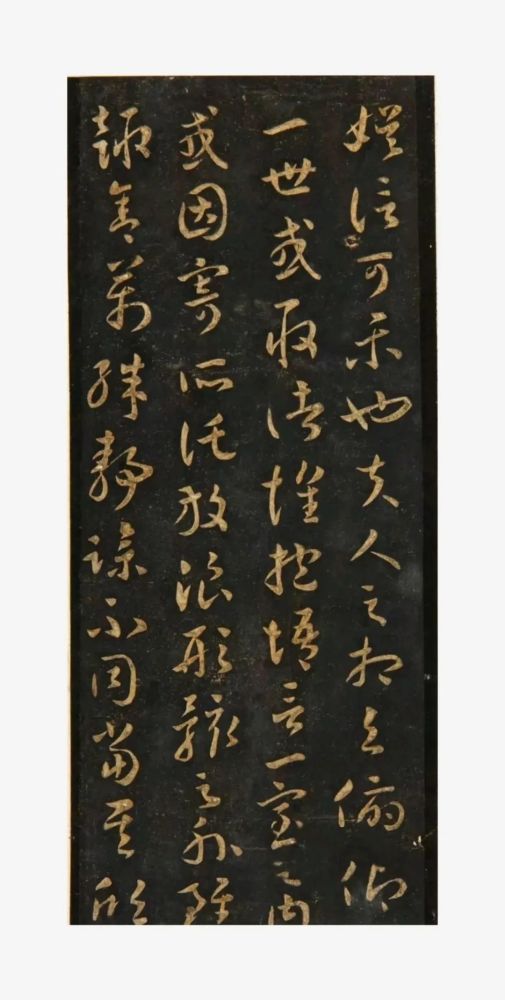 娛信可樂也夫人之相與俯仰
一世或取諸懷抱悟言一室之內
或因寄所託放浪形骸之外雖
趣舍萬殊靜躁不同當其欣